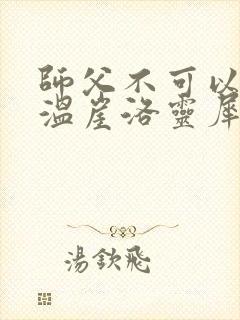 師父不可以
溫崖洛靈犀
湯欽飛